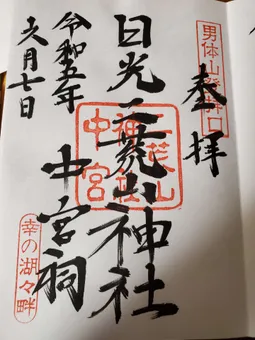 男体山登拝口
奉拝
日光二荒山神社
中宮祠
二荒山
中宮
令和五年
月七日
幸の湖々畔